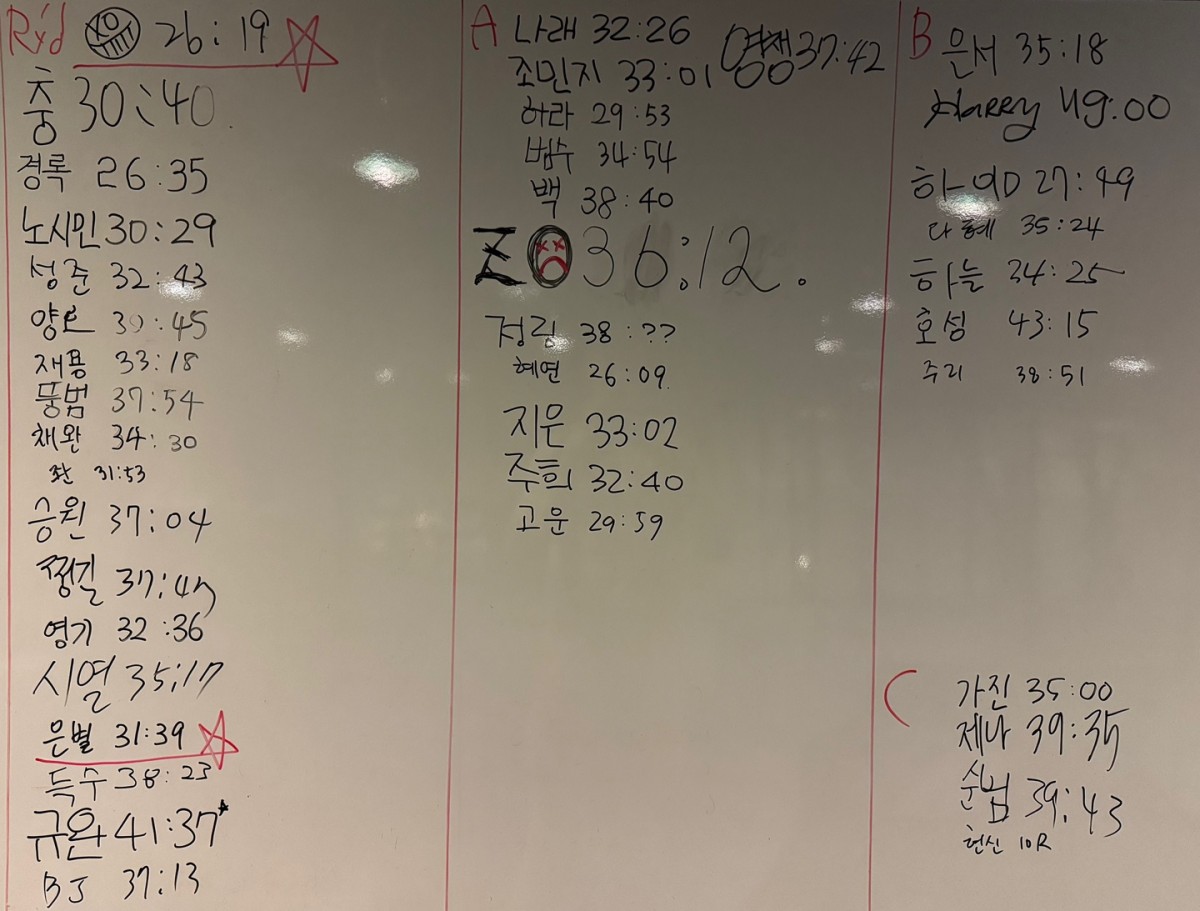 Rx'd 26:19
충 30:40
경록 26:35
노시민 30:29
성준 32:43
45
재용 33:18
뚱범 37:54
채완 34:30
31:53
승원 37:04
쩡길
영기 32:36
시열 35:17
은별 31:39
득수 38:23
규완 41:37
BJ 37:13
A
나래 32:26
조민지 33:01
영쟁 37:42
하라 29:53
범수 34:54
백 38:40
36:12.
정림 38:??
혜연 26:09
지은 33:02
주희 32:40
고운 29:59
B
은서 35:18
Harry 49:00
27:49
다혜 35:24
하늘 34:25
호성 43:15
주리 38:51
C
가진 35:00
제나 39:35
쉰님 39:43
현신 10R